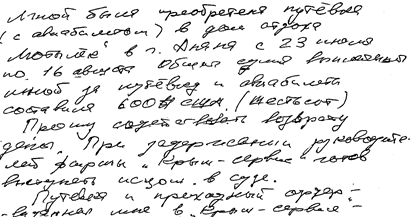 Мной была приобретена путёвка
(с авиабилетом) в дом отдыха
в г. с 23 июля
по 16 августа Общая сумма
мной за путёвку и авиабилета
составила 600 $ США. (шестьсот)
Прошу содействовать возврату
денег. При задержании руководите-
лей фирмы "Крым-сервис" готов
выступить истцом в суде.
Путёвка и приходный ордер -
мне в "Крым-сервис" -